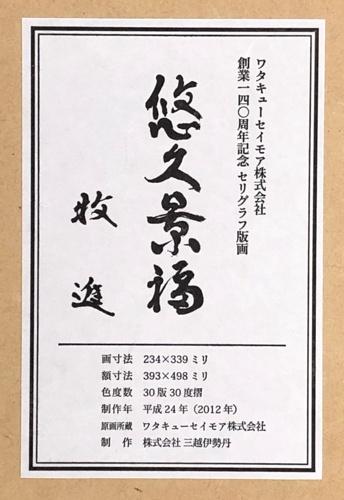 ワタキューセイモア株式会社
創業一四〇周年記念 セリグラフ版画
悠久景福
牧 進
画寸法 234×339ミリ
額寸法 393×498ミリ
色度数 30版30度摺
制作年 平成24年（2012年）
原画所蔵 ワタキューセイモア株式会社
制作 株式会社 三越伊勢丹